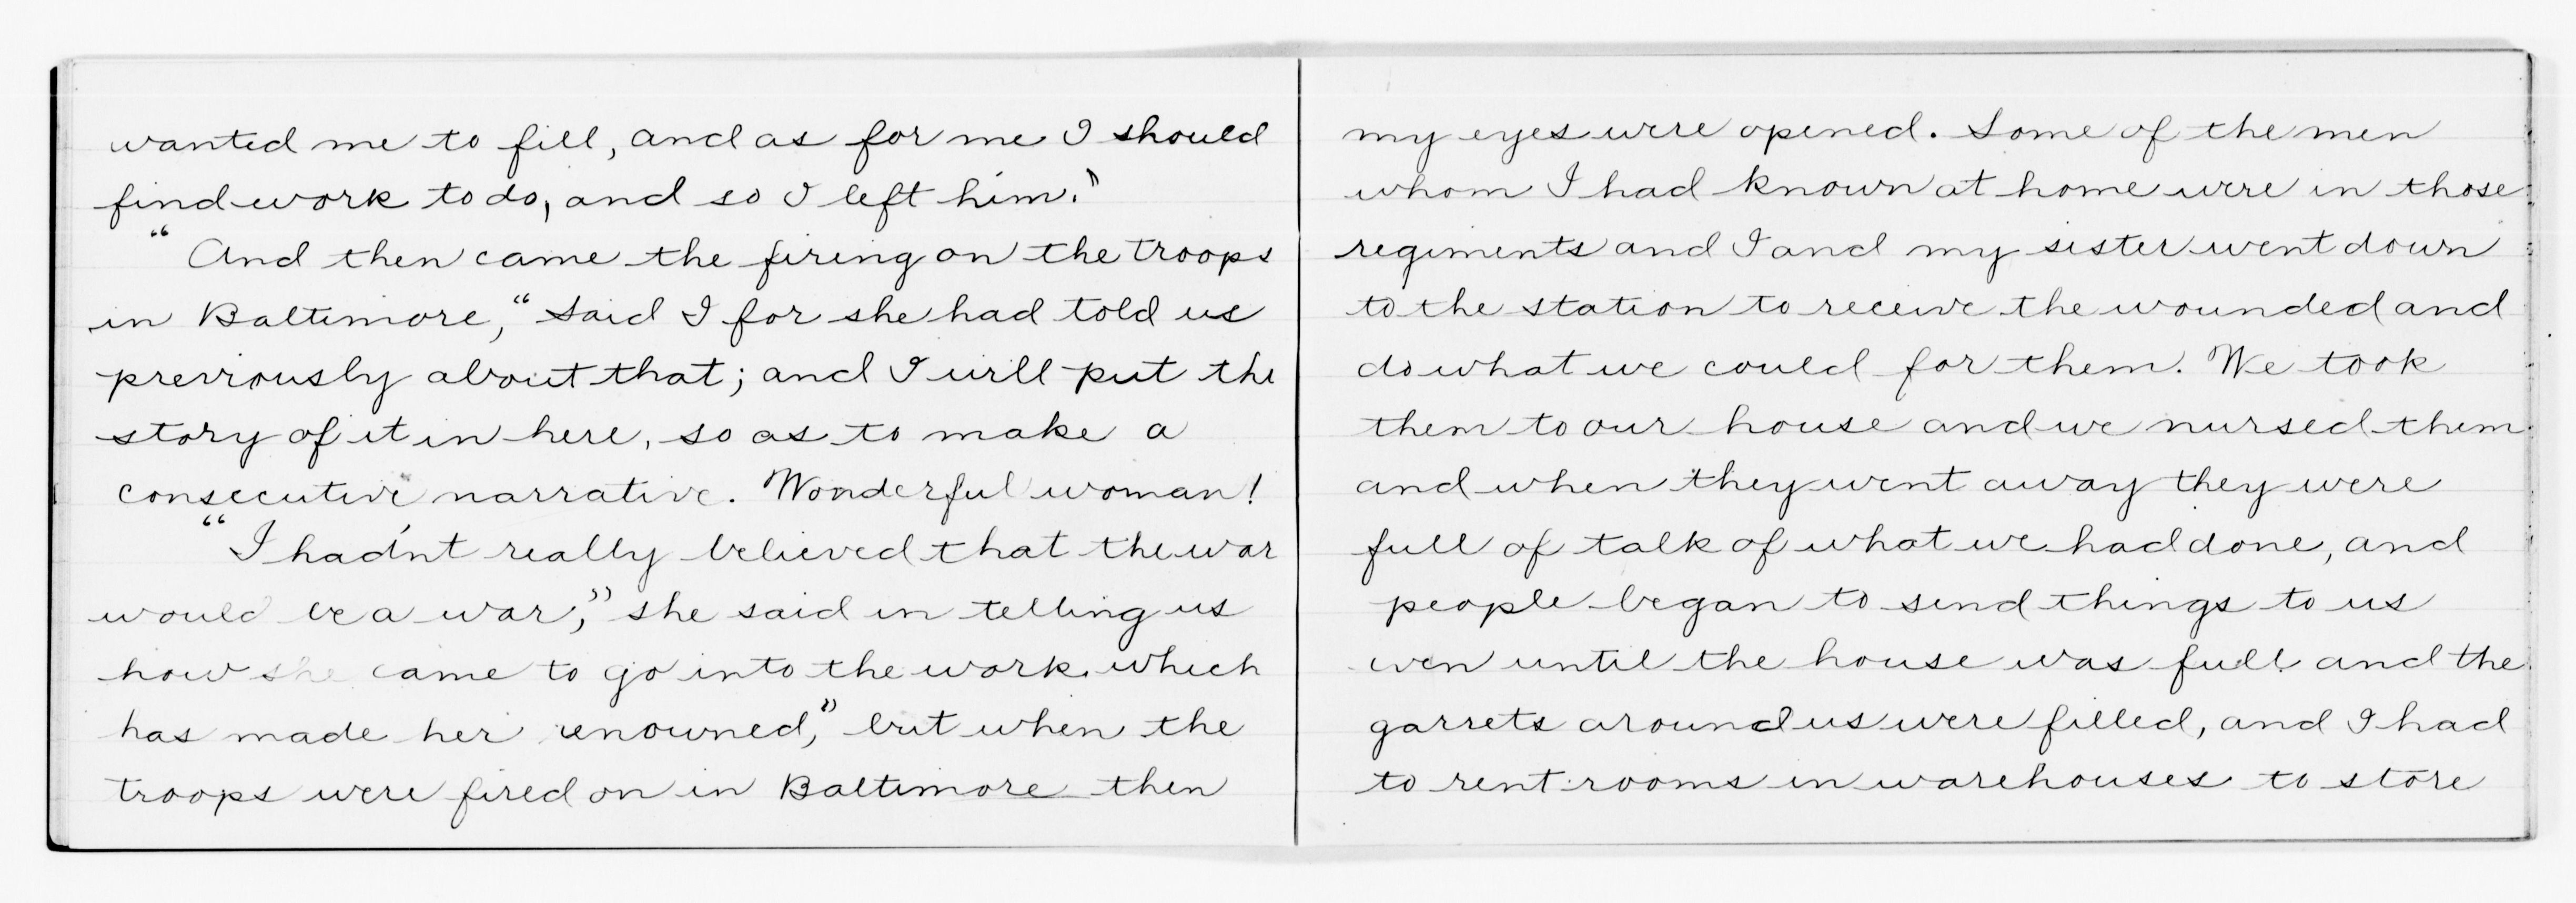 wanted me to fill, and as for me I should
find work to do, and so I left him."
"And then came the firing on the troops
in Baltimore," said I for she had told us
previously about that; and I will put the
story of it in here, so as to make a
consecutive narrative. Wonderful woman!
"I had'nt really believed that the war
would be a war," she said in telling us
how she came to go into the work which
has made her renowned," but when the
troops were fired on in Baltimore then
my eyes were opened. Some of the men
whom I had known at home were in those
regiments and I and my sister went down
to the station to receive the wounded and
do what we could for them. We took
them to our house and we nursed them
and when they went away they were
full of talk of what we had done, and
people began to send things to us
even until the house was full and the
garrets around us were filled, and I had
to rent rooms in warehouses to store